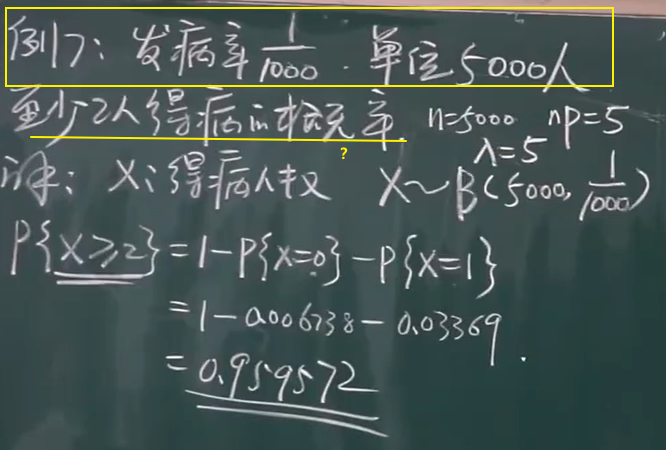 例7：发病率 1/1000 . 单位5000人
至少2人得病的概率. n=5000 np=5
?
λ=5
解：X：得病人数 X~B(5000, 1/1000)
P{X≥2}=1-P{X=0}-P{X=1}
=1-0.006738-0.03369
=0.959572.